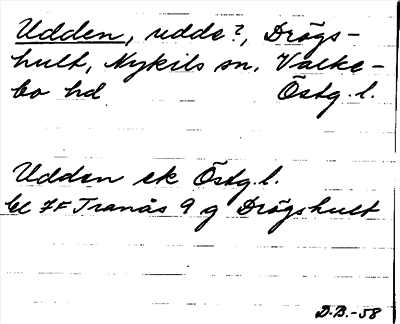 Udden, udde?, Drögs-
hult, Nykils sn, Valke-
bo hd Östg.l.
Udden ek Östg.l.
bl 7F Tranås 9 g Drögshult
D.B.-58